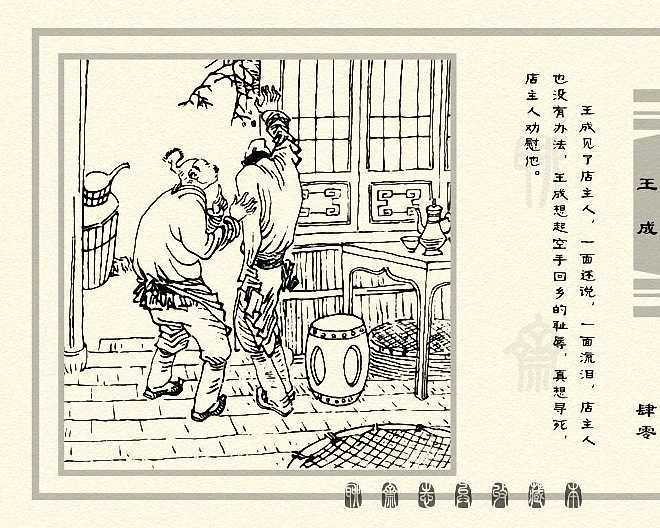 王成见了店主人，一面述说，一面流泪，店主人
也没有办法，王成想起空手回乡的耻辱，真想寻死，
店主人劝慰他。
王成
肆零
聊斋志异收藏本